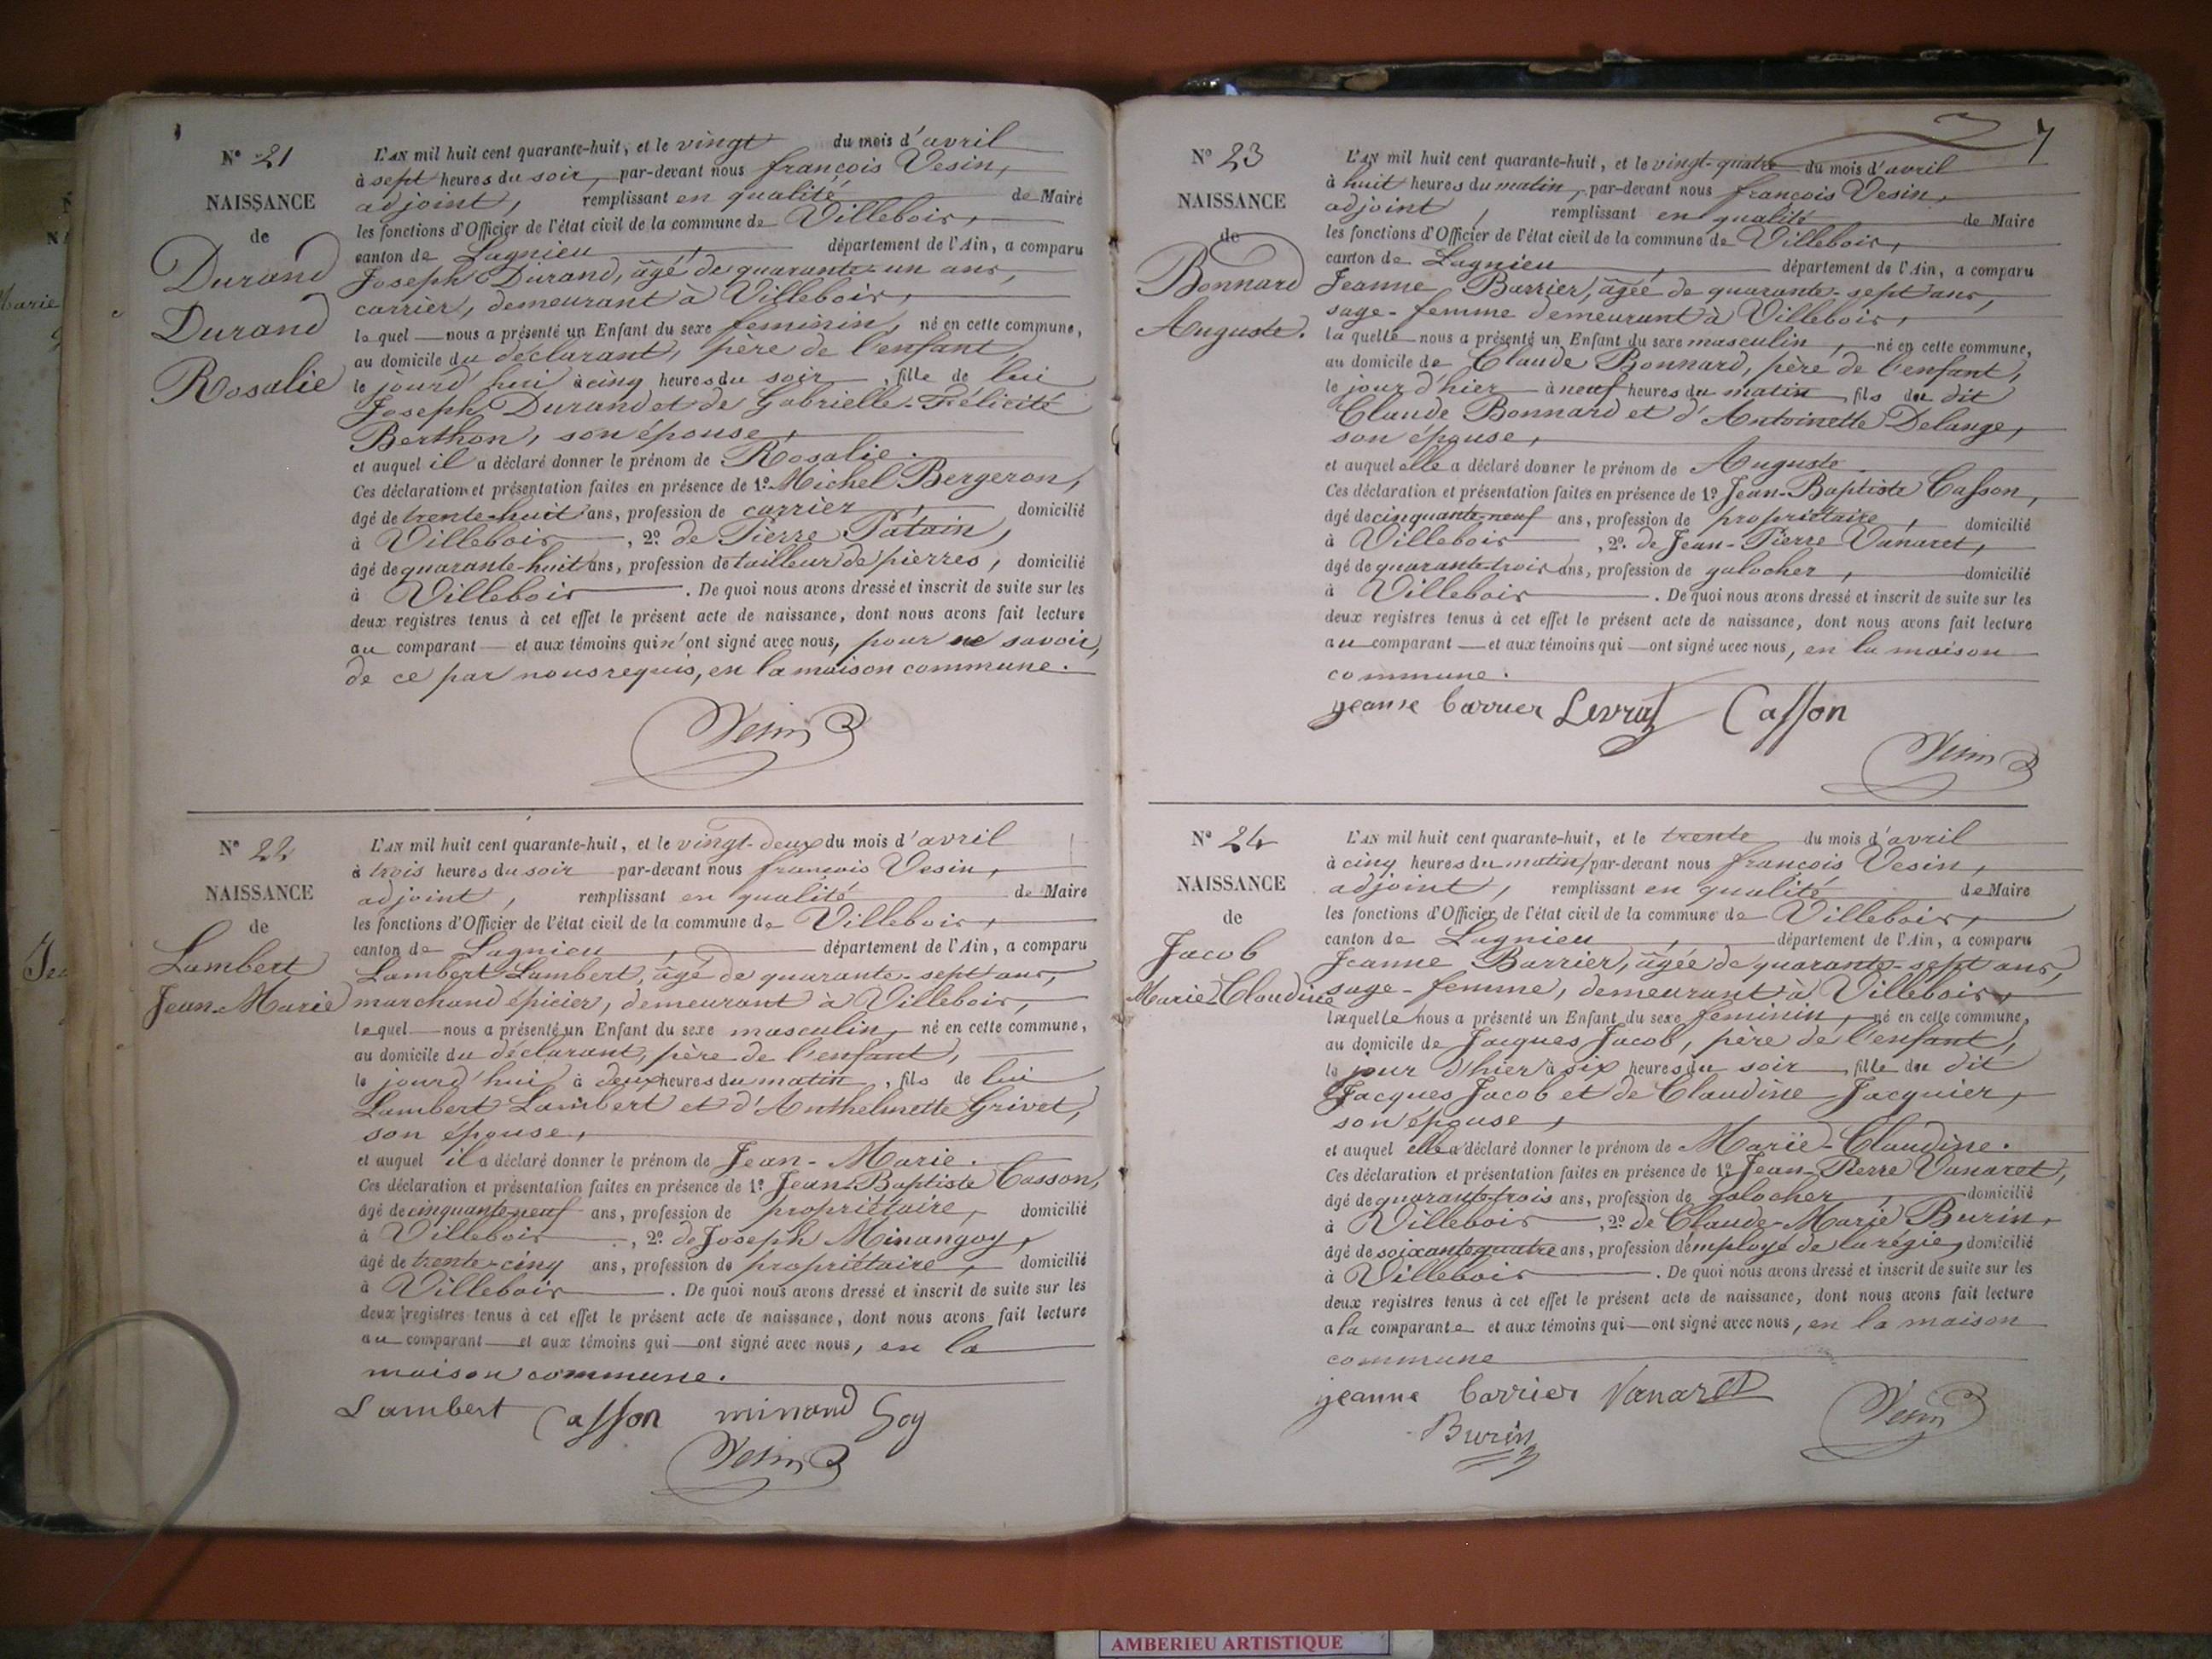 N° 21
NAISSANCE
de
Durand
Durand
Rosalie
L'AN mil huit cent quarante-huit, et le vingt du mois d'avril
à sept heures du soir, par-devant nous françois Vesin,
adjoint, remplissant en qualité de Maire
les fonctions d'Officier de l'état civil de la commune de Villebois,
canton de Lagnieu, département de l'Ain, a comparu
Joseph Durand, âgé de quarante-un ans,
carrier, demeurant à Villebois,
lequel nous a présenté un Enfant du sexe feminin, né en cette commune,
au domicile du déclarant, père de l'enfant,
le jourd'hui à cinq heures du soir, fille de lui
Joseph Durand et de Gabrielle-Félicité
Berthon, son épouse,
et auquel il a déclaré donner le prénom de Rosalie.
Ces déclaration et présentation faites en présence de 1° Michel Bergeron,
âgé de trente-huit ans, profession de carrier, domicilié
à Villebois, 2° de Pierre Patain,
âgé de quarante-huit ans, profession de tailleur de pierres, domicilié
à Villebois. De quoi nous avons dressé et inscrit de suite sur les
deux registres tenus à cet effet le présent acte de naissance, dont nous avons fait lecture
au comparant et aux témoins qui n'ont signé avec nous, pour ne savoir,
de ce par nous requis, en la maison commune.
Vesin
N° 22
NAISSANCE
de
Lambert
Jean-Marie
L'AN mil huit cent quarante-huit, et le vingt-deux du mois d'avril
à trois heures du soir par-devant nous francois Vesin,
adjoint, remplissant en qualité de Maire
les fonctions d'Officier de l'état civil de la commune de Villebois,
canton de Lagnieu, département de l'Ain, a comparu
Lambert Lambert, âgé de quarante-sept ans,
marchand épicier, demeurant à Villebois,
lequel nous a présenté un Enfant du sexe masculin, né en cette commune,
au domicile du déclarant, père de l'enfant,
le jourd'hui à deux heures du matin, fils de lui
Lambert Lambert et d'Anthelmette Grivet,
son épouse,
et auquel il a déclaré donner le prénom de Jean-Marie.
Ces déclaration et présentation faites en présence de 1° Jean-Baptiste Casson,
âgé de cinquante-neuf ans, profession de propriétaire, domicilié
à Villebois, 2° de Joseph Minangoy,
âgé de trente-cinq ans, profession de propriétaire, domicilié
à Villebois. De quoi nous avons dressé et inscrit de suite sur les
deux registres tenus à cet effet le présent acte de naissance, dont nous avons fait lecture
au comparant et aux témoins qui ont signé avec nous, en la
maison commune.
Lambert Casson minand Goy
Vesin
7
N° 23
NAISSANCE
de
Bonnard
Auguste.
L'AN mil huit cent quarante-huit, et le vingt-quatre du mois d'avril
à huit heures du matin, par-devant nous françois Vesin,
adjoint, remplissant en qualité de Maire
les fonctions d'Officier de l'état civil de la commune de Villebois,
canton de Lagnieu, département de l'Ain, a comparu
Jeanne Barrier, âgée de quarante-sept ans,
sage-femme demeurant à Villebois,
la quelle nous a présenté un Enfant du sexe masculin, né en cette commune,
au domicile de Claude Bonnard, père de l'enfant,
le jour d'hier à neuf heures du matin fils du dit
Claude Bonnard et d'Antoinette Delange,
son épouse,
et auquel elle a déclaré donner le prénom de Auguste
Ces déclaration et présentation faites en présence de 1° Jean-Baptiste Casson,
âgé de cinquante-neuf ans, profession de propriétaire, domicilié
à Villebois, 2° de Jean-Pierre Vanaret,
âgé de quarante-trois ans, profession de galocher, domicilié
à Villebois. De quoi nous avons dressé et inscrit de suite sur les
deux registres tenus à cet effet le présent acte de naissance, dont nous avons fait lecture
au comparant et aux témoins qui ont signé avec nous, en la maison
commune.
jeanne barrier Levrat Casson
Vesin
N° 24
NAISSANCE
de
Jacob
Marie-Claudine
L'AN mil huit cent quarante-huit, et le trente du mois d'avril
à cinq heures du matin, par-devant nous françois Vesin,
adjoint, remplissant en qualité de Maire
les fonctions d'Officier de l'état civil de la commune de Villebois,
canton de Lagnieu, département de l'Ain, a comparu
Jeanne Barrier, âgée de quarante-sept ans,
sage-femme, demeurant à Villebois,
laquelle nous a présenté un Enfant du sexe feminin, né en cette commune,
au domicile de Jacques Jacob, père de l'enfant,
le jour d'hier à six heures du soir, fille du dit
Jacques Jacob et de Claudine Jacquier,
son épouse,
et auquel elle a déclaré donner le prénom de Marie-Claudine.
Ces déclaration et présentation faites en présence de 1° Jean-Pierre Vanaret,
âgé de quarante-trois ans, profession de galocher, domicilié
à Villebois, 2° de Claude-Marie Burin,
âgé de soixante quatre ans, profession d'employé de la régie, domicilié
à Villebois. De quoi nous avons dressé et inscrit de suite sur les
deux registres tenus à cet effet le présent acte de naissance, dont nous avons fait lecture
a la comparante et aux témoins qui ont signé avec nous, en la maison
commune
jeanne barrier Vanaret
Burin
Vesin
AMBERIEU ARTISTIQUE